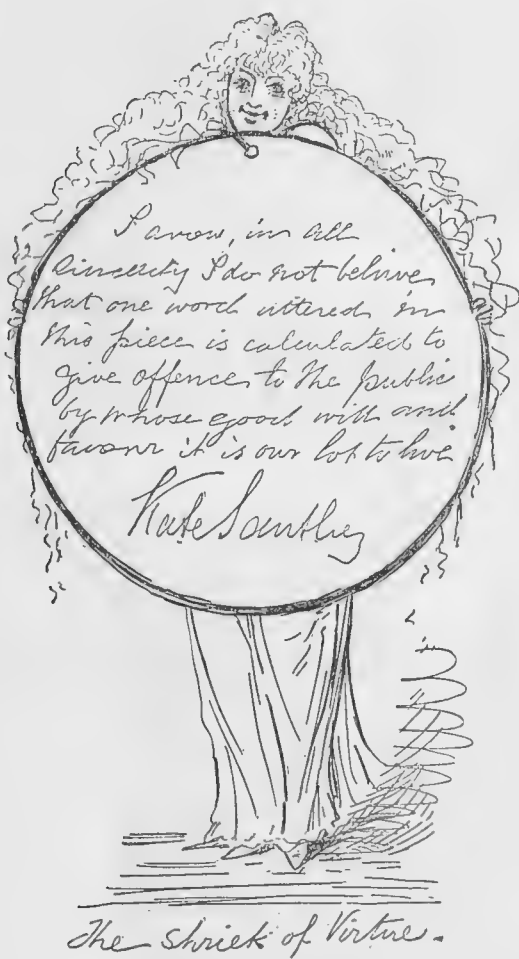 I avow, in all
sincerity I do not believe
that one word uttered in
this piece is calculated to
give offence to the public
by whose good will and
favour it is our lot to live
Kate Santley
The shriek of Virtue.